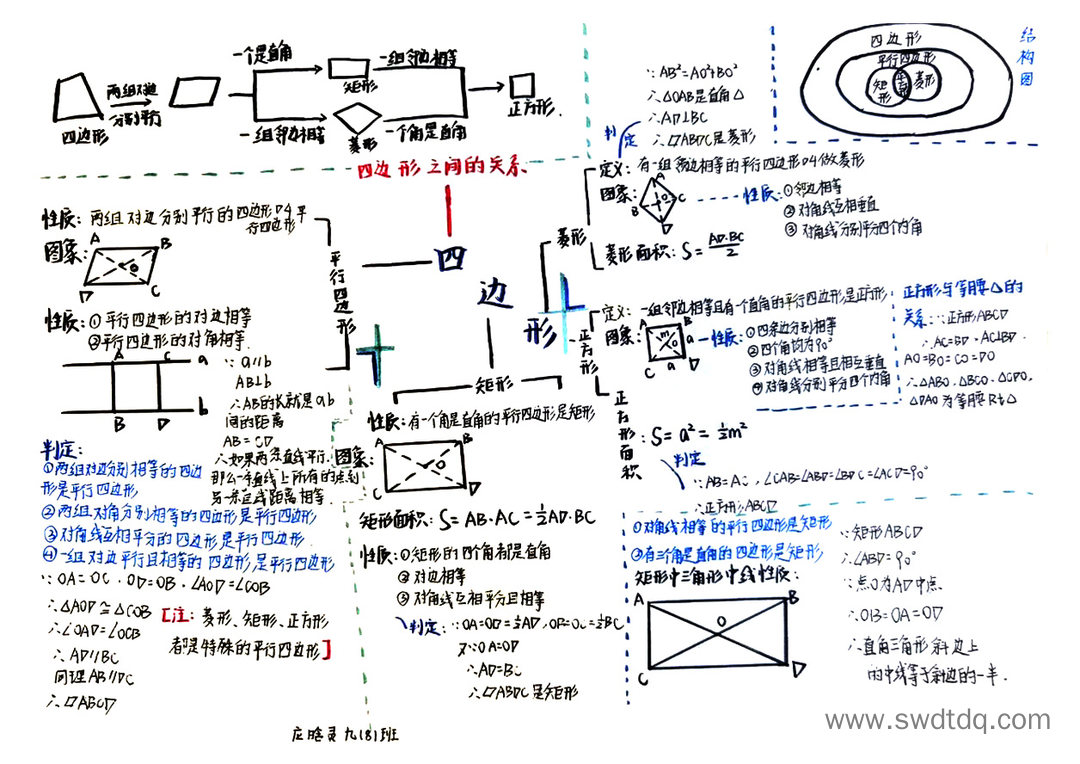 一个是直角
一组邻边相等
两组对边
分别平行
四边形
矩形
正方形
一组邻边相等
菱形
一个角是直角
四边形之间的关系
∵AB²=AO²+BO²
∴△OAB是直角△
∴AD⊥BC
∴▱ABDC是菱形
判定
四边形
平行四边形
矩形
正方形
菱形
结构图
四边形
平行四边形
性质:两组对边分别平行的四边形叫平行四边形
图象:
A
B
O
D
C
性质:①平行四边形的对边相等
②平行四边形的对角相等.
A
C
a
b
B
D
∵a∥b
AB⊥b
∴AB的长就是ab
间的距离
AB=CD
∴如果两条直线平行.
那么一条直线上所有的点到
另一条直线距离相等.
判定:
①两组对边分别相等的四边
形是平行四边形
②两组对角分别相等的四边形是平行四边形
③对角线互相平分的四边形是平行四边形.
④一组对边平行且相等的四边形,是平行四边形
∵OA=OC.OD=OB.∠AOD=∠COB
∴△AOD≌△COB
∴∠OAD=∠OCB
∴AD∥BC
同理AB∥DC
∴▱ABCD
[注:菱形、矩形、正方形
都是特殊的平行四边形]
菱形
定义:有一组邻边相等的平行四边形叫做菱形
图象:
A
B
C
O
D
性质:①邻边相等
②对角线互相垂直
③对角线分别平分四个内角
菱形面积:S=AD·BC/2
正方形
定义:一组邻边相等且有一个直角的平行四边形是正方形
图象:
A
B
m
O
a
C
a
D
性质:①四条边分别相等
②四个角均为90°
③对角线相等且相互垂直
④对角线分别平分四个内角
正方形与等腰△的
关系:∵正方形ABCD
∴AC=BD.AC⊥BD.
AO=BO=CO=DO
∴△ABO.△BCO.△CDO.
△DAO为等腰Rt△
正方形面积:S=a²=½m²
判定
∵AB=AC,∠CAB=∠ABD=∠BDC=∠ACD=90°
∴正方形ABCD
矩形
性质:有一个角是直角的平行四边形是矩形
图象:
A
B
O
C
D
矩形面积:S=AB·AC=½AD·BC
性质:①矩形的四个角都是直角
②对边相等
③对角线互相平分且相等
判定:∵OA=OD=½AD,OB=OC=½BC
又∵OA=OD
∴AD=BC
∴▱ABDC是矩形
①对角线相等的平行四边形是矩形
②有三个角是直角的四边形是矩形
矩形中三角形中线性质:
A
B
O
C
D
∵矩形ABCD
∴∠ABD=90°
∵点O为AD中点
∴OB=OA=OD
∴直角三角形斜边上
的中线等于斜边的一半.
九(8)班
www.swdtdq.com